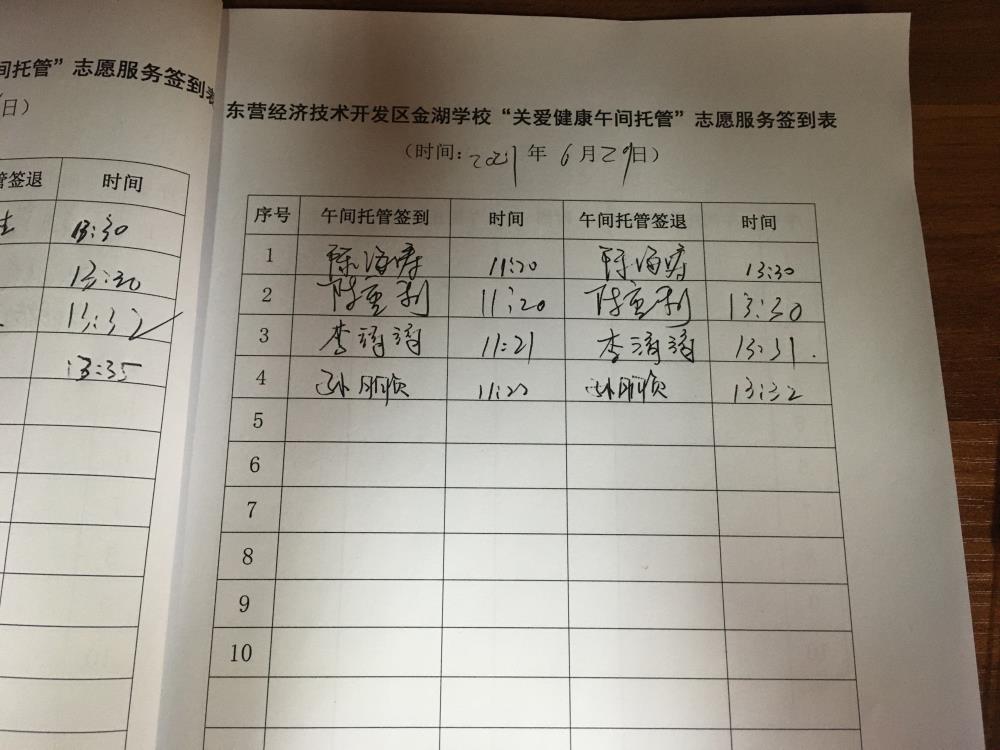 间托管”志愿服务签到表
日）
管签退 时间
13:30
13:30
13:32
13:35
东营经济技术开发区金湖学校“关爱健康午间托管”志愿服务签到表
（时间：2021年6月29日）
序号 午间托管签到 时间 午间托管签退 时间
1 陈海寿 11:20 陈海寿 13:30
2 11:20 13:30
3 李诗诗 11:21 李诗诗 13:31.
4 孙朋顺 11:22 孙朋顺 13:32
5
6
7
8
9
10